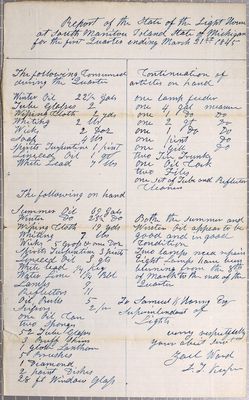 Report of the State of the Light House
at South Manitou Island State of Michigan
for the first Quarter ending March 31st 1845
The following Consumed
during the Quarter
Winter Oil 22 1/2 Gals
Tube Glasses 2
Wiping Cloth 2 yds
Whiting 2 lbs
Wick 2 Doz
Soap
Spirits Turpentine 1 pint
Linseed Oil 1 qt
White Lead 7 lbs
The following on hand
Summer Oil 69 Gals
Winter Do
Wiping Cloth 19 yds
Whiting lbs
Wicks 5 gross & one Doz
Spirits Turpentine 3 pints
Linseed Oil 3 gts
White lead 1/4 keg
Water Lime 1/2 Bbl
Lamps
Reflectors
Oil Butts 5
Scissors 2 pr
one Oil Can
two Sponges
52 Tube Glasses
3 Buff Skins
1 glass Lanthorn
5 Brushes
1 Diamond
2 paint Dishes
28 ft Window Glass
Continuation of
articles on hand
one lamp feeder
one 4 gals measure
one 1 do Do
one 2 qt Do
one 1 Do Do
one pint Do
one 1 gal Do
two Tin Trunks
one Oil Cask
two Files
one Set of Tube and Reflector
Cleaners
Both the Summer and
Winter Oil appear to be
Good and in good
Condition
Two lamps need repair
Eight Lamps have been
burning from the
of March to the end of the
Quarter
To Samuel K Henry Esq
Superintendent of
Lights
very respectfully
your obed Servt
Ward
Keeper